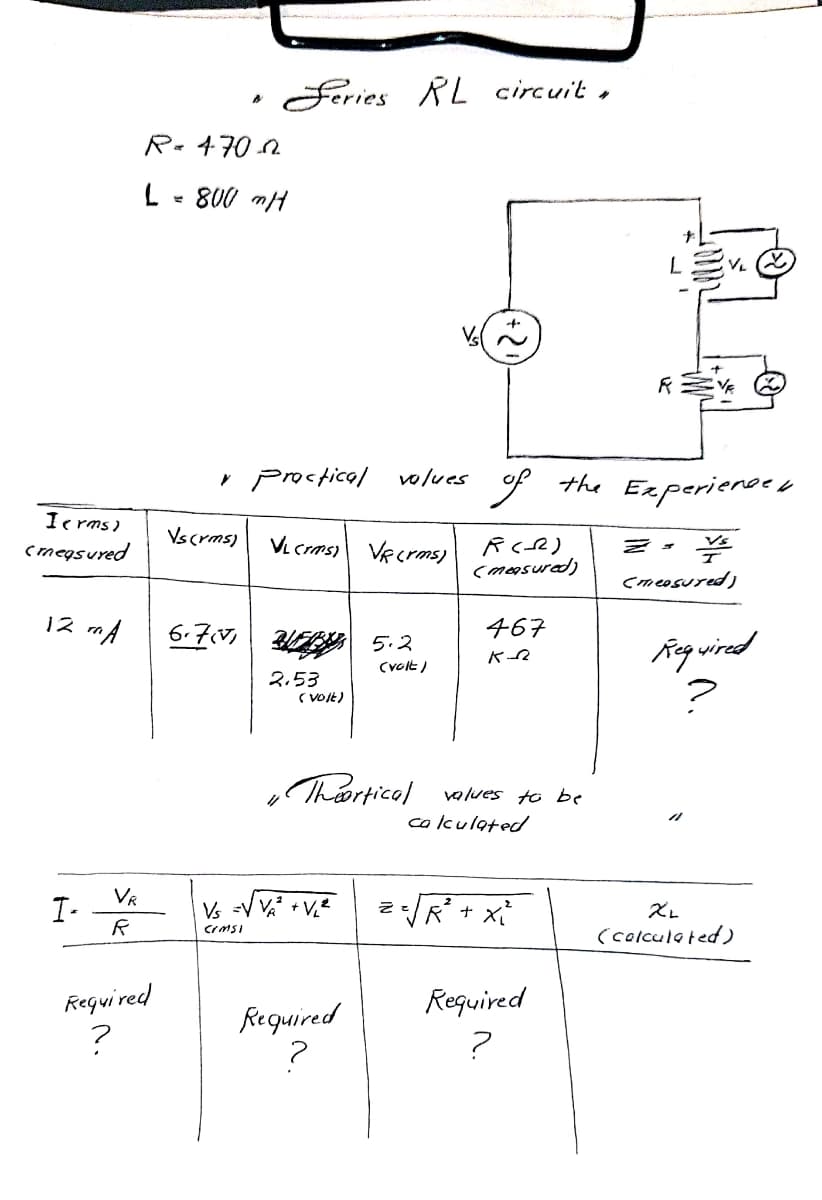 " Series RL circuit "
R = 470 Ω
L = 800 mH
L VL
Vs
R VR
" Practical values of the Experience "
I(rms) (measured Vs(rms) VL(rms) VR(rms) R(Ω) (measured) Z = Vs/I (measured)
12 mA 6.7(V) 2.53 (volt) 5.2 (volt) 467 KΩ Required ?
" Theortical values to be calculated "
I = VR/R Vs (rms) = √VR² + VL² Z = √R² + XL² XL (calculated)
Required ? Required ? Required ?